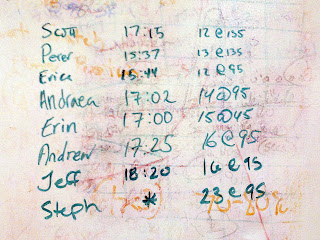 Scott 17:15 12@135
Peter 15:37 13@135
Erica 15:44 12@95
Andraea 17:02 14@95
Erin 17:00 15@45
Andrew 17:25 16@95
Jeff 18:20 16@95
Steph * 23@95